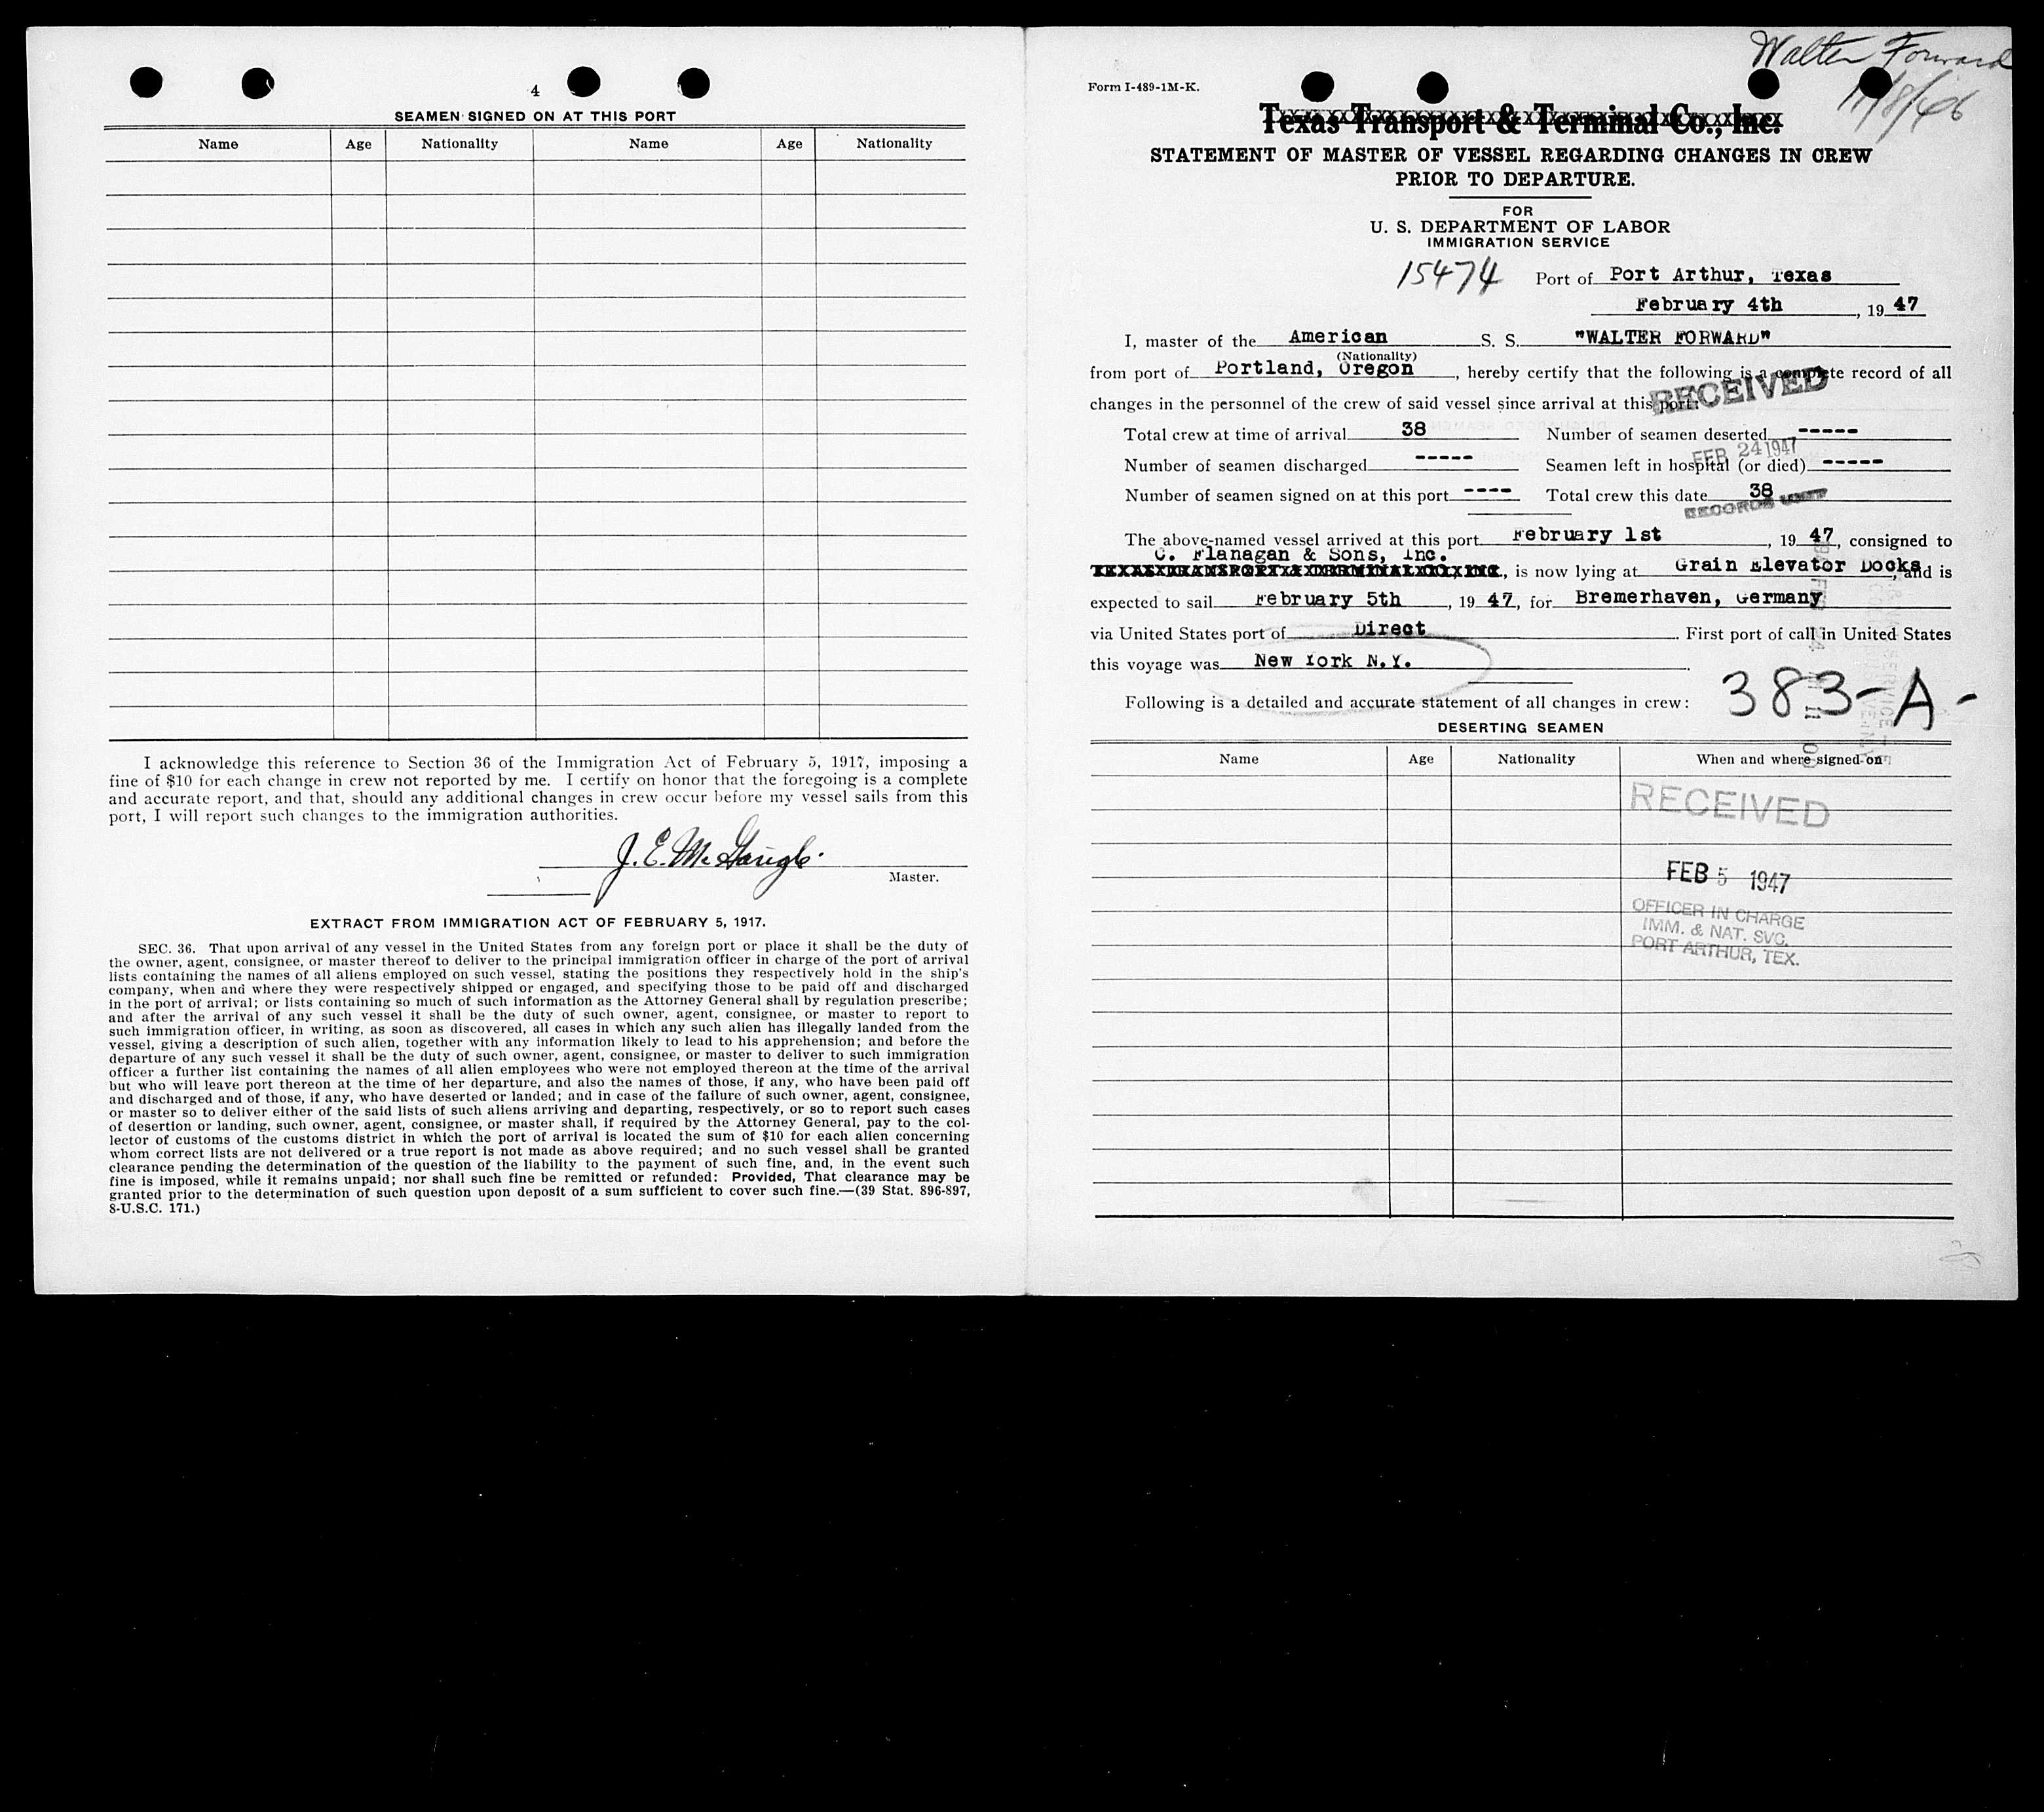 4
SEAMEN SIGNED ON AT THIS PORT
Name Age Nationality Name Age Nationality
I acknowledge this reference to Section 36 of the Immigration Act of February 5, 1917, imposing a
fine of $10 for each change in crew not reported by me. I certify on honor that the foregoing is a complete
and accurate report, and that, should any additional changes in crew occur before my vessel sails from this
port, I will report such changes to the immigration authorities.
J. E. Mc
Master.
EXTRACT FROM IMMIGRATION ACT OF FEBRUARY 5, 1917.
SEC. 36. That upon arrival of any vessel in the United States from any foreign port or place it shall be the duty of
the owner, agent, consignee, or master thereof to deliver to the principal immigration officer in charge of the port of arrival
lists containing the names of all aliens employed on such vessel, stating the positions they respectively hold in the ship's
company, when and where they were respectively shipped or engaged, and specifying those to be paid off and discharged
in the port of arrival; or lists containing so much of such information as the Attorney General shall by regulation prescribe;
and after the arrival of any such vessel it shall be the duty of such owner, agent, consignee, or master to report to
such immigration officer, in writing, as soon as discovered, all cases in which any such alien has illegally landed from the
vessel, giving a description of such alien, together with any information likely to lead to his apprehension; and before the
departure of any such vessel it shall be the duty of such owner, agent, consignee, or master to deliver to such immigration
officer a further list containing the names of all alien employees who were not employed thereon at the time of the arrival
but who will leave port thereon at the time of her departure, and also the names of those, if any, who have been paid off
and discharged and of those, if any, who have deserted or landed; and in case of the failure of such owner, agent, consignee,
or master so to deliver either of the said lists of such aliens arriving and departing, respectively, or so to report such cases
of desertion or landing, such owner, agent, consignee, or master shall, if required by the Attorney General, pay to the col-
lector of customs of the customs district in which the port of arrival is located the sum of $10 for each alien concerning
whom correct lists are not delivered or a true report is not made as above required; and no such vessel shall be granted
clearance pending the determination of the question of the liability to the payment of such fine, and, in the event such
fine is imposed, while it remains unpaid; nor shall such fine be remitted or refunded: Provided, That clearance may be
granted prior to the determination of such question upon deposit of a sum sufficient to cover such fine.—(39 Stat. 896-897,
8-U.S.C. 171.)
Walter Forward
11/8/46
Form I-489-1M-K.
Texas Transport & Terminal Co., Inc.
STATEMENT OF MASTER OF VESSEL REGARDING CHANGES IN CREW
PRIOR TO DEPARTURE.
FOR
U. S. DEPARTMENT OF LABOR
IMMIGRATION SERVICE
15474 Port of Port Arthur, Texas
February 4th, 19 47
I, master of the American S. S. "WALTER FORWARD"
(Nationality)
from port of Portland, Oregon, hereby certify that the following is a complete record of all
changes in the personnel of the crew of said vessel since arrival at this port:
RECEIVED
Total crew at time of arrival 38 Number of seamen deserted -----
FEB 24 1947
Number of seamen discharged ----- Seamen left in hospital (or died) -----
Number of seamen signed on at this port ---- Total crew this date 38
RECORDS UNIT
The above-named vessel arrived at this port February 1st, 19 47, consigned to
C. Flanagan & Sons, Inc.
TEXAS TRANSPORT & TERMINAL CO., INC., is now lying at Grain Elevator Docks, and is
expected to sail February 5th, 19 47, for Bremerhaven, Germany
via United States port of Direct. First port of call in United States
this voyage was New York N.Y.
Following is a detailed and accurate statement of all changes in crew: 383-A-
DESERTING SEAMEN
Name Age Nationality When and where signed on
RECEIVED
FEB 5 1947
OFFICER IN CHARGE
IMM. & NAT. SVC.
PORT ARTHUR, TEX.